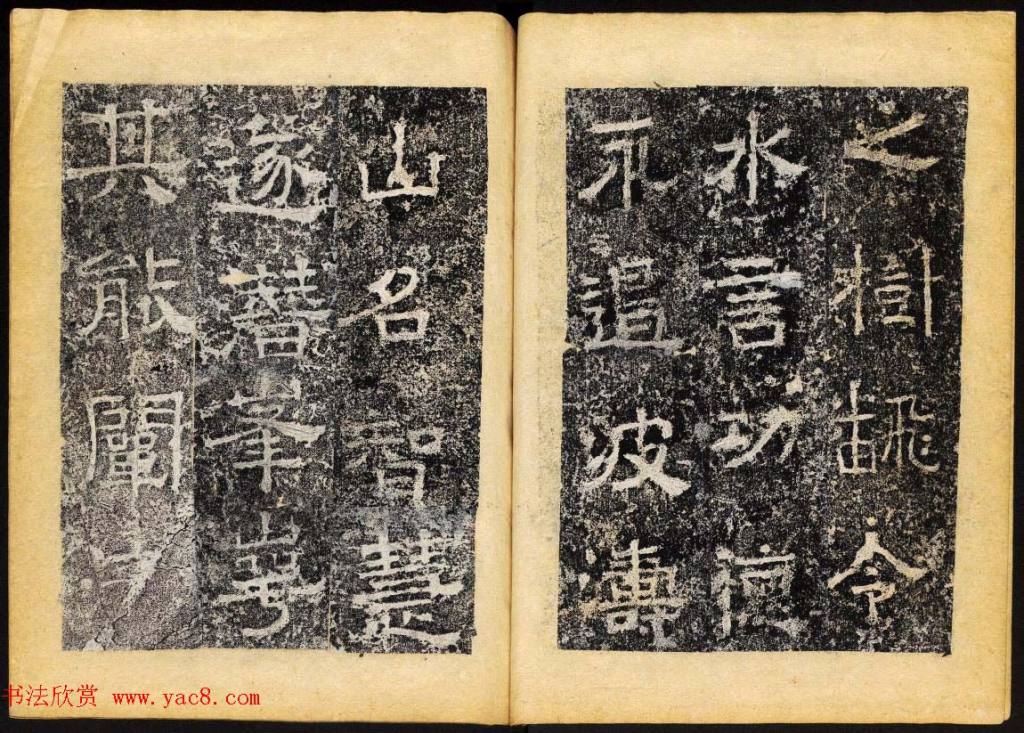 之樹令
水言功德
不追波濤
山名智慧
遂潛峯崿
其能闡
书法欣赏 www.yac8.com